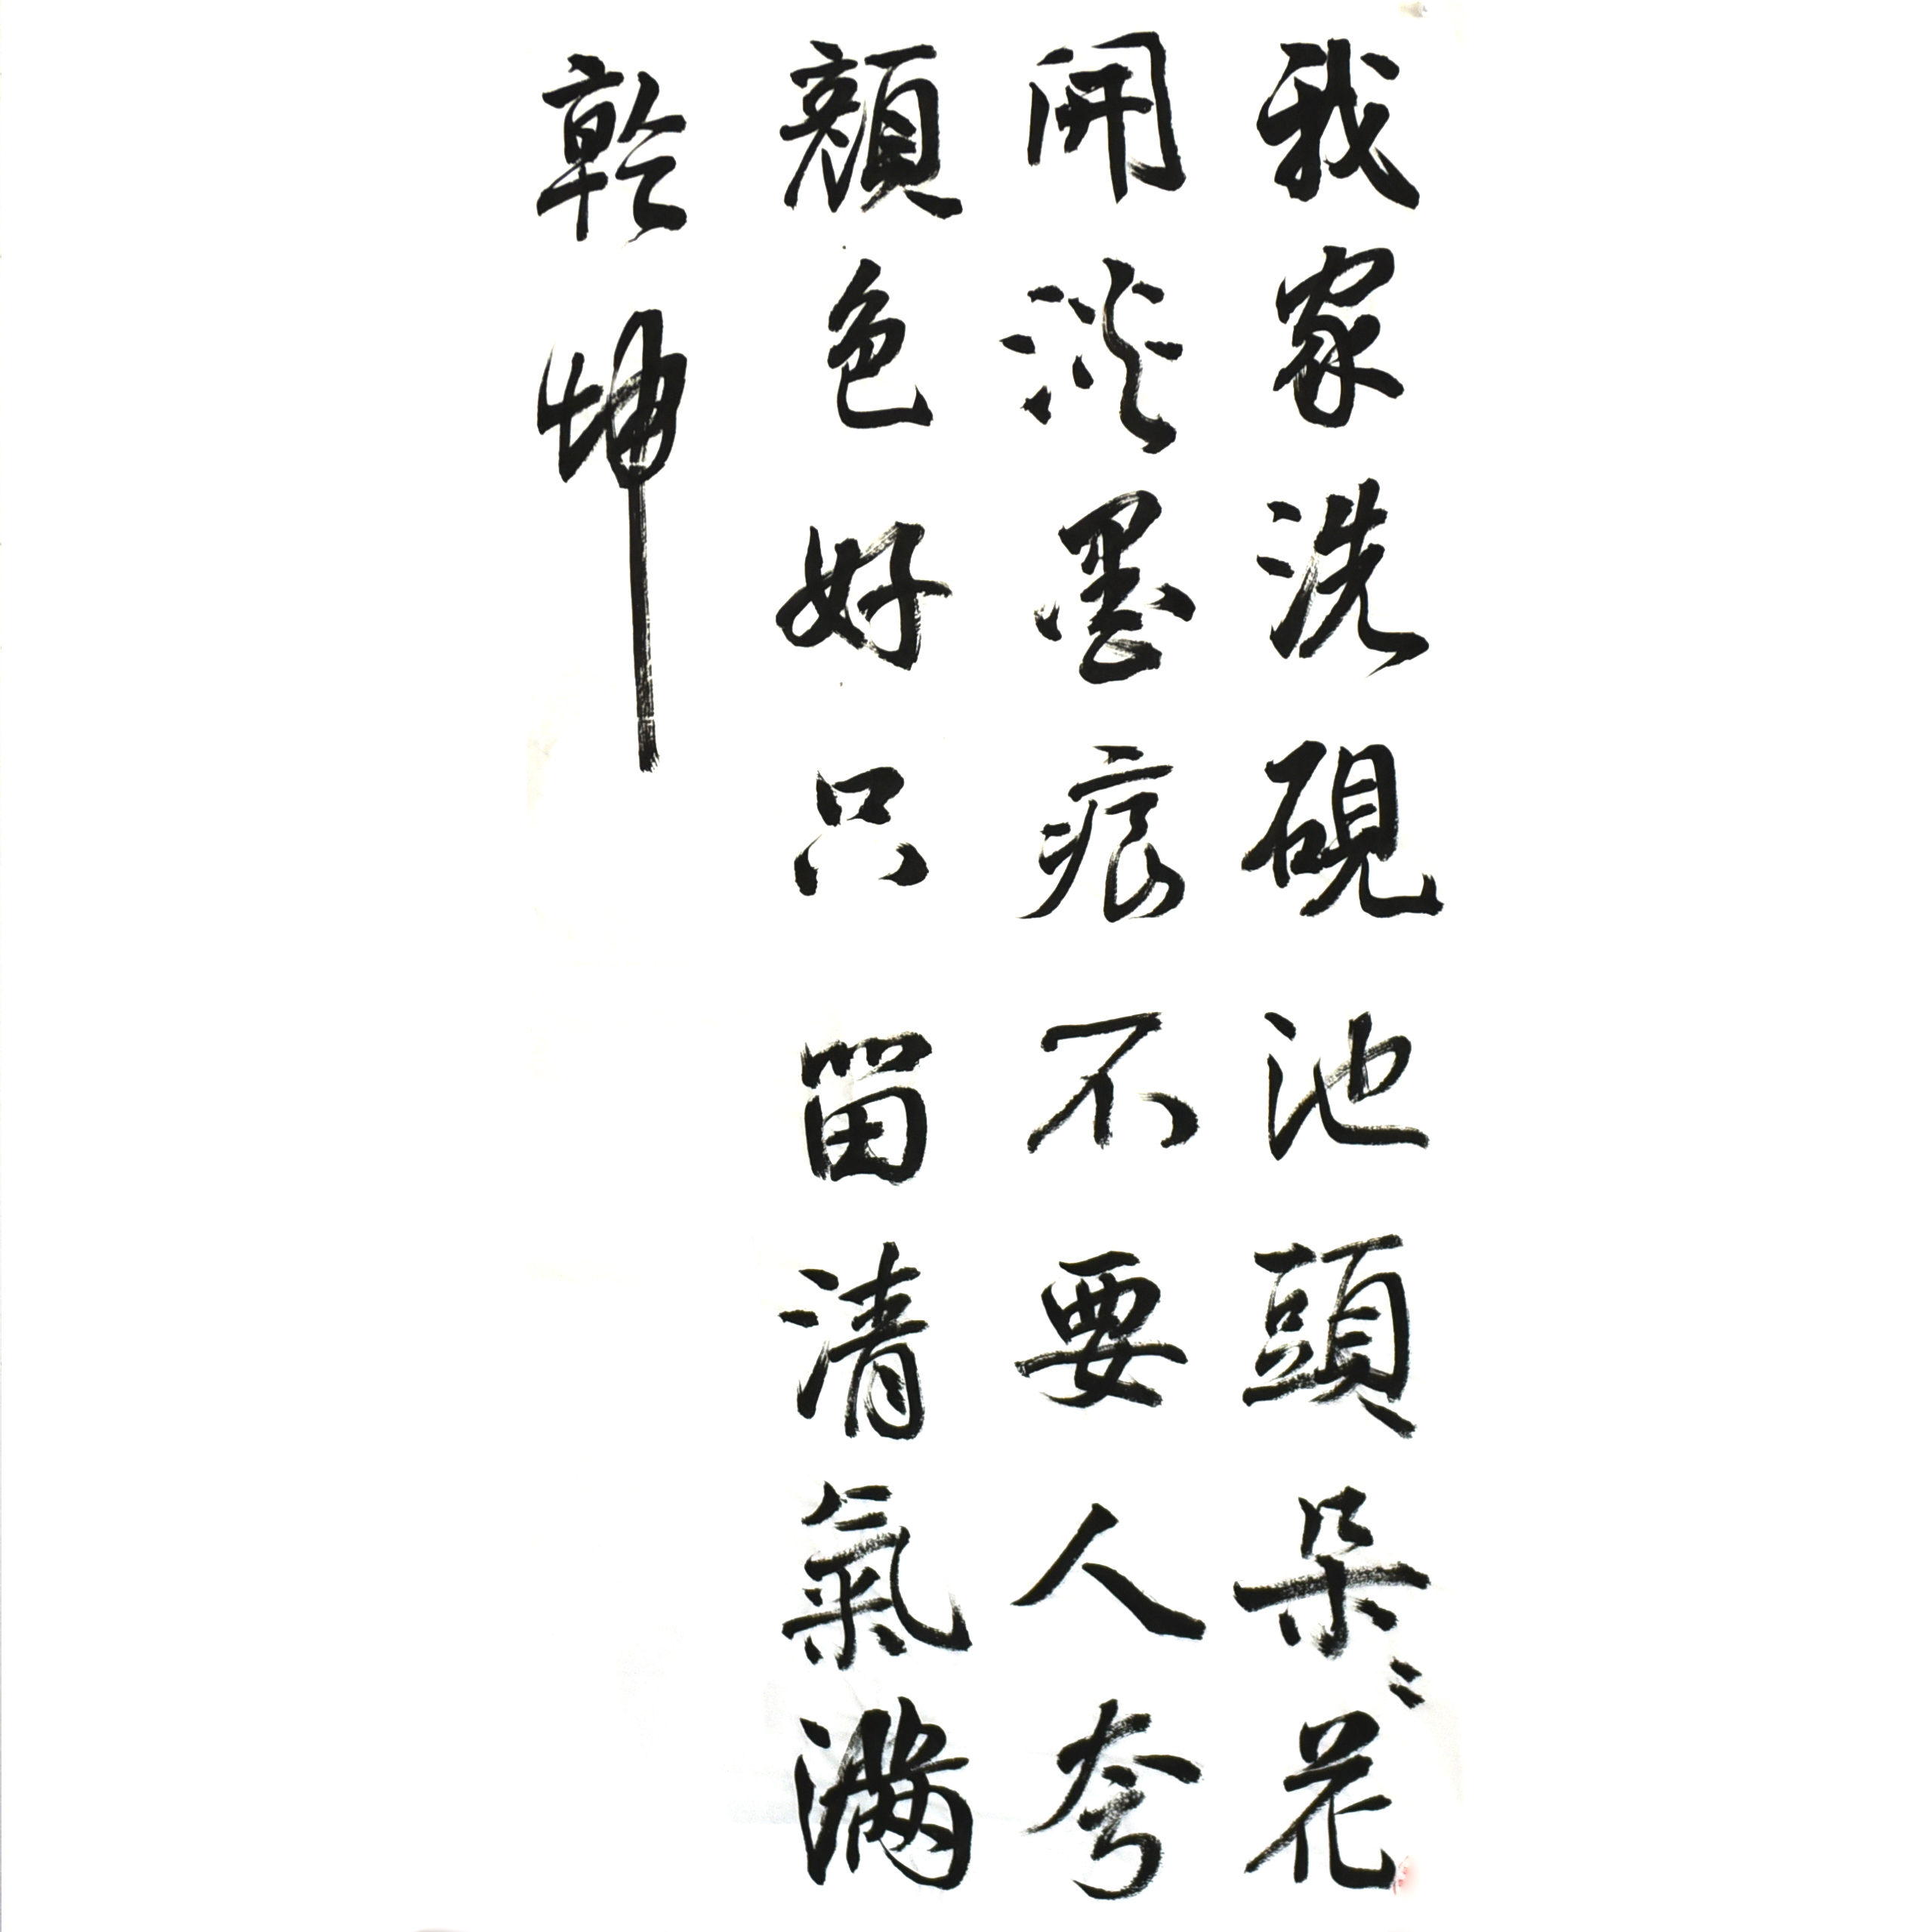 我家洗硯池頭朵〻花
開淡墨痕不要人夸
顔色好只留清氣滿
乾坤